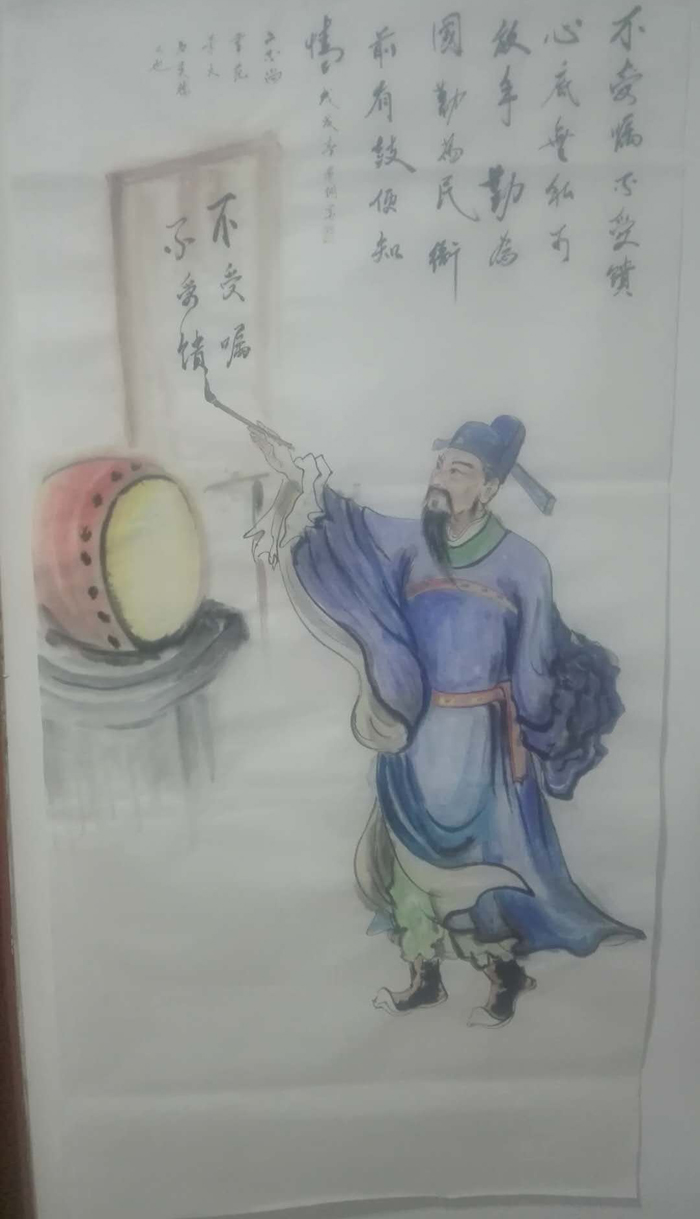 不受嘱不受馈
心底無私可
放手勤為
國勤為民衙
前有鼓便知
情 戊戌冬
不受嘱
不受馈